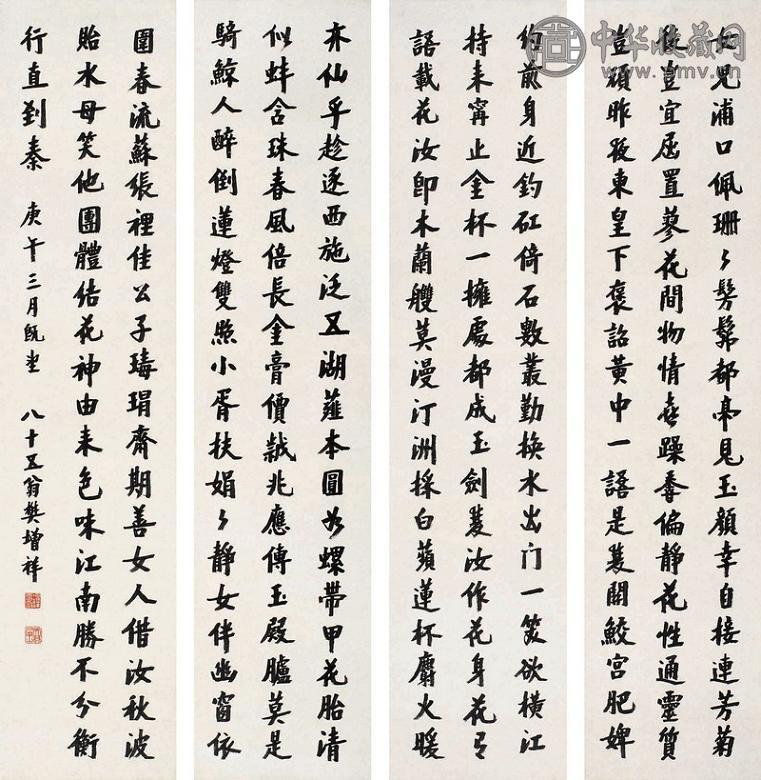 中华收藏网
www.ymv.cn
女兒浦口佩珊〻髣髴都亭見玉顏幸自接連芳菊
後豈宜屈置蓼花間物情喜躁吾偏靜花性通靈質
豈頑昨夜東皇下褒詔黃中一語是開鮫宮肥婢
約前身近釣矼倚石數叢勤換水出门一笑欲橫江
持来甯止金杯一擁處都成玉劍汝作花身花有
語載花汝即木蘭艭莫漫汀洲採白蘋蓮杯麝火暖
水仙乎趁逐西施泛五湖薤本圓如螺帶甲花胎清
似蚌含珠春風倍長金膏價兆應傳玉殿臚莫是
騎鯨人醉倒蓮燈雙照小胥扶娟〻靜女伴幽窗依
圍春流蘇張裡佳公子瑇瑁齋期善女人借汝秋波
貽水母笑他團體結花神由来色味江南勝不分衡
行直到秦 庚午三月既望 八十五翁樊增祥